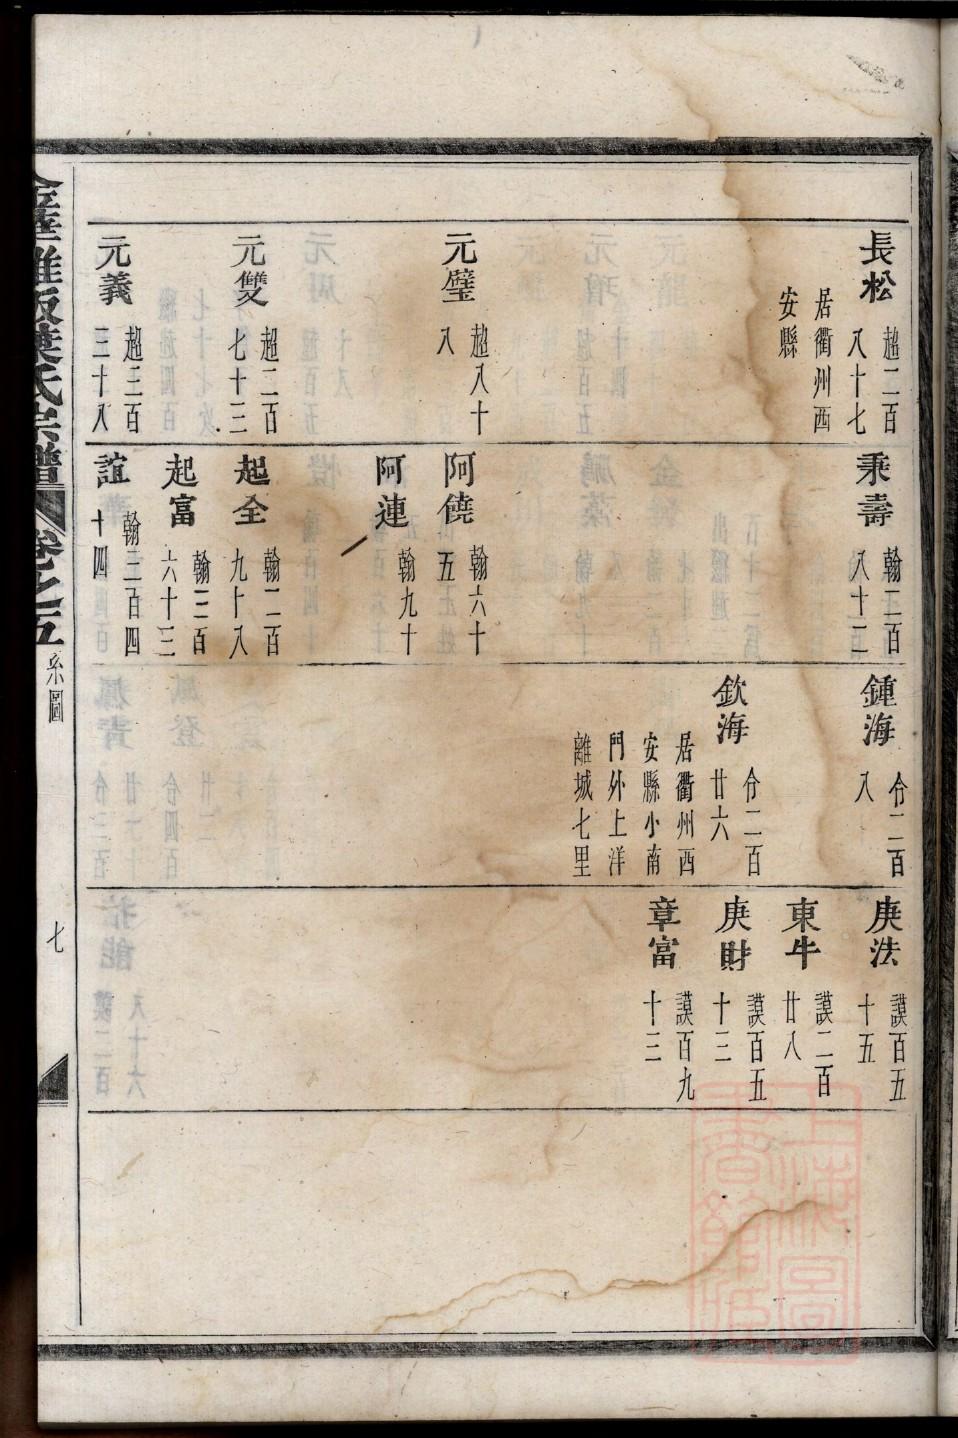 長松
超二百
八十七
居衢州西
安縣
元璧
超八十
八
元雙
超二百
七十三
元義
超三百
三十八
秉壽
翰二百
八十二
阿饒
翰六十
五
阿連
翰九十
起全
翰二百
九十八
起富
翰三百
六十三
誼
翰三百四
十四
鍾海
令二百
八
欽海
令二百
廿六
居衢州西
安縣小南
門外上洋
離城七里
庚法
謨百五
十五
東牛
謨二百
廿八
庚財
謨百五
十三
章富
謨百九
十三
葉氏宗譜
卷之五
系圖
七
上海圖
書館藏